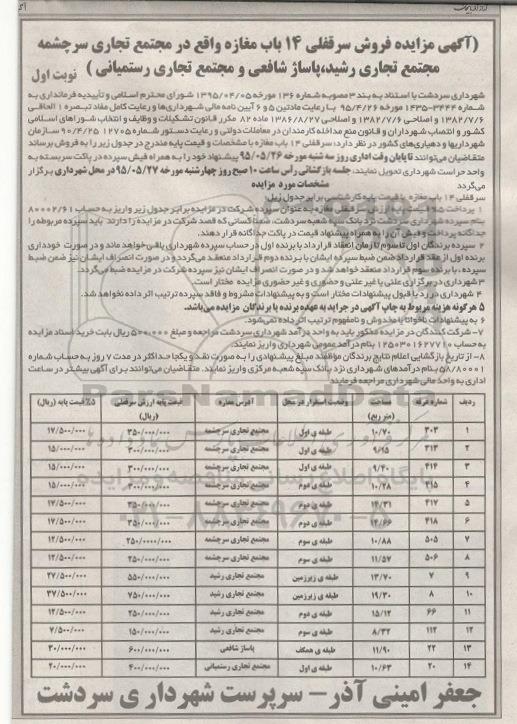 (آگهی مزایده فروش سرقفلی ۱۴ باب مغازه واقع در مجتمع تجاری سرچشمه
مجتمع تجاری رشید،پاساژ شافعی و مجتمع تجاری رستمیانی )
نوبت اول
شهرداری سردشت با استناد به بند ۳ مصوبه شماره ۱۳۶ مورخه ۱۳۹۵/۰۴/۰۵ شورای محترم اسلامی و تأییدیه فرمانداری به
شماره ۳۴۴۴-۱۴۳۵ مورخه ۹۵/۴/۲۶ با رعایت مادتین ۵ و ۶ آیین نامه مالی شهرداریها و رعایت کامل مفاد تبصره ۱ الحاقی
۱۳۸۲/۷/۶ و اصلاحی ۱۳۸۲/۷/۶ و اصلاحی ۱۳۸۶/۸/۲۷ ماده ۸۲ مکرر قانون تشکیلات و وظایف و انتخاب شوراهای اسلامی
کشور و انتصاب شهرداران و قانون منع مداخله کارمندان در معاملات دولتی و رعایت دستور شماره ۱۲۷۰۵ ۹۰/۴/۲۵ سازمان
شهرداریها و دهیاری‌های کشور در نظر دارد، سرقفلی ۱۴ باب مغازه با مشخصات و قیمت پایه مندرج در جدول زیر را به فروش برساند
متقاضیان می‌توانند تا پایان وقت اداری روز سه شنبه مورخه ۹۵/۰۵/۲۶ پیشنهاد خود را به همراه فیش سپرده در پاکت سربسته به
واحد حراست شهرداری تحویل نمایند، جلسه بازگشائی رأس ساعت ۱۰ صبح روز چهارشنبه مورخه ۹۵/۰۵/۲۷ در محل شهرداری برگزار
می‌گردد
مشخصات مورد مزایده
سرقفلی ۱۴ باب مغازه با قیمت پایه کارشناسی برابر جدول زیل:
۱ پرداخت ۵٪ قیمت پایه ارزش سرقفلی مغازه به عنوان سپرده شرکت در مزایده برابر جدول زیر واریز به حساب ۸۰۰۰۲/۶۱
بنام سپرده شهرداری سردشت نزد بانک سپه شعبه سردشت، ضمناً کسانی که قصد شرکت در مزایده را دارند باید سپرده مربوطه را
جداگانه پرداخت و فیش آن را به همراه پیشنهاد قیمت در پاکت جداگانه قرار دهند.
۲ سپرده برندگان اول تا سوم تا زمان انعقاد قرارداد با برنده اول در حساب سپرده شهرداری باقی خواهد ماند و در صورت خودداری
برنده اول از عقد قرارداد ضمن ضبط سپرده ایشان با برنده دوم قرارداد منعقد می‌گردد و در صورت انصراف ایشان نیز ضمن ضبط
سپرده، با برنده سوم قرارداد منعقد خواهد شد و در صورت انصراف ایشان نیز سپرده شرکت در مزایده ضبط می‌گردد.
۳ شهرداری در برگزاری علنی یا غیر علنی و حضوری و غیر حضوری مزایده مختار است.
۴ شهرداری در رد یا قبول پیشنهادات مختار است و به پیشنهادات مشروط و فاقد سپرده ترتیب اثر داده نخواهد شد.
۵ هرگونه هزینه مربوط به چاپ آگهی در جراید به عهده برنده یا برندگان مزایده می‌باشد.
۶ به پیشنهادات ناخوانا یا مخدوش و نامفهوم ترتیب اثر داده نمی‌شود.
۷- شرکت کنندگان در مزایده مذکور باید به واحد درآمد شهرداری سردشت مراجعه و مبلغ ۵۰۰،۰۰۰ ریال بابت خرید اسناد مزایده
به حساب ۱۲۵۰۳۰۱۶۲۷۷۱۰ بنام درآمد عمومی شهرداری واریز نمایند.
۸- از تاریخ بازگشایی اعلام نتایج برندگان موظفند مبلغ پیشنهادی را به صورت نقد و یکجا حداکثر در مدت ۷ روز به حساب شماره
۵۸/۸۰۰۰۱ بنام درآمدهای شهرداری نزد بانک سپه شعبه مرکزی واریز نمایند. متقاضیان می‌توانند برای آگهی بیشتر در ساعت
اداری به واحد مالی شهرداری مراجعه فرمایند
ردیف شماره غرفه مساحت (متر ربع) وضعیت استقرار در محل آدرس مغازه قیمت پایه ارزش سرقفلی (ریال) ۵٪ قیمت پایه (ریال)
۱ ۳۰۳ ۱۰/۷۰ طبقه ی اول مجتمع تجاری سرچشمه ۳۵۰/۰۰۰/۰۰۰ ۱۷/۵۰۰/۰۰۰
۲ ۳۱۳ ۹/۱۵ طبقه ی اول مجتمع تجاری سرچشمه ۳۰۰/۰۰۰/۰۰۰ ۱۵/۰۰۰/۰۰۰
۳ ۴۱۴ ۹/۴۰ طبقه ی اول مجتمع تجاری سرچشمه ۳۰۰/۰۰۰/۰۰۰ ۱۵/۰۰۰/۰۰۰
۴ ۴۱۵ ۱۰/۲۸ طبقه ی دوم مجتمع تجاری سرچشمه ۳۰۰/۰۰۰/۰۰۰ ۱۵/۰۰۰/۰۰۰
۵ ۴۱۷ ۱۴/۳۱ طبقه ی دوم مجتمع تجاری سرچشمه ۳۵۰/۰۰۰/۰۰۰ ۱۷/۵۰۰/۰۰۰
۶ ۴۱۸ ۱۴/۶۶ طبقه ی دوم مجتمع تجاری سرچشمه ۳۵۰/۰۰۰/۰۰۰ ۱۷/۵۰۰/۰۰۰
۷ ۵۰۵ ۱۰/۸۸ طبقه ی سوم مجتمع تجاری سرچشمه ۲۵۰/۰۰۰۰/۰۰۰ ۱۲/۵۰۰/۰۰۰
۸ ۵۰۶ ۱۱/۵۷ طبقه ی سوم مجتمع تجاری سرچشمه ۲۵۰/۰۰۰/۰۰۰ ۱۲/۵۰۰/۰۰۰
۹ ۷ ۱۳/۷۰ طبقه ی زیرزمین مجتمع تجاری رشید ۵۵۰/۰۰۰/۰۰۰ ۲۷/۵۰۰/۰۰۰
۱۰ ۸ ۱۹/۳۰ طبقه ی زیرزمین مجتمع تجاری رشید ۷۵۰/۰۰۰/۰۰۰ ۳۷/۵۰۰/۰۰۰
۱۱ ۶۶ ۱۵/۱۲ طبقه ی دوم مجتمع تجاری رشید ۲۵۰/۰۰۰/۰۰۰ ۱۲/۵۰۰/۰۰۰
۱۲ ۱۱۲ ۸/۳۲ طبقه ی سوم مجتمع تجاری رشید ۱۵۰/۰۰۰/۰۰۰ ۷/۵۰۰/۰۰۰
۱۳ ۲۲ ۱۱/۹۰ طبقه ی همکف پاساژ شافعی ۶۰۰/۰۰۰/۰۰۰ ۳۰/۰۰۰/۰۰۰
۱۴ ۲۰ ۱۰/۶۳ طبقه ی اول مجتمع تجاری رستمیانی ۴۰۰/۰۰۰/۰۰۰ ۲۰/۰۰۰/۰۰۰
جعفر امینی آذر – سرپرست شهرداری سردشت